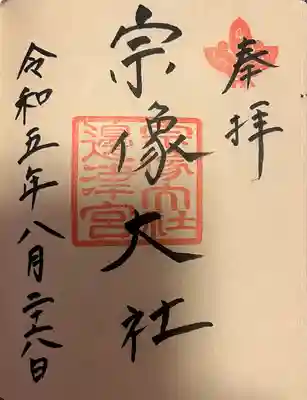 奉拝
宗像大社
宗像大社
邊津宮
令和五年八月二十六日